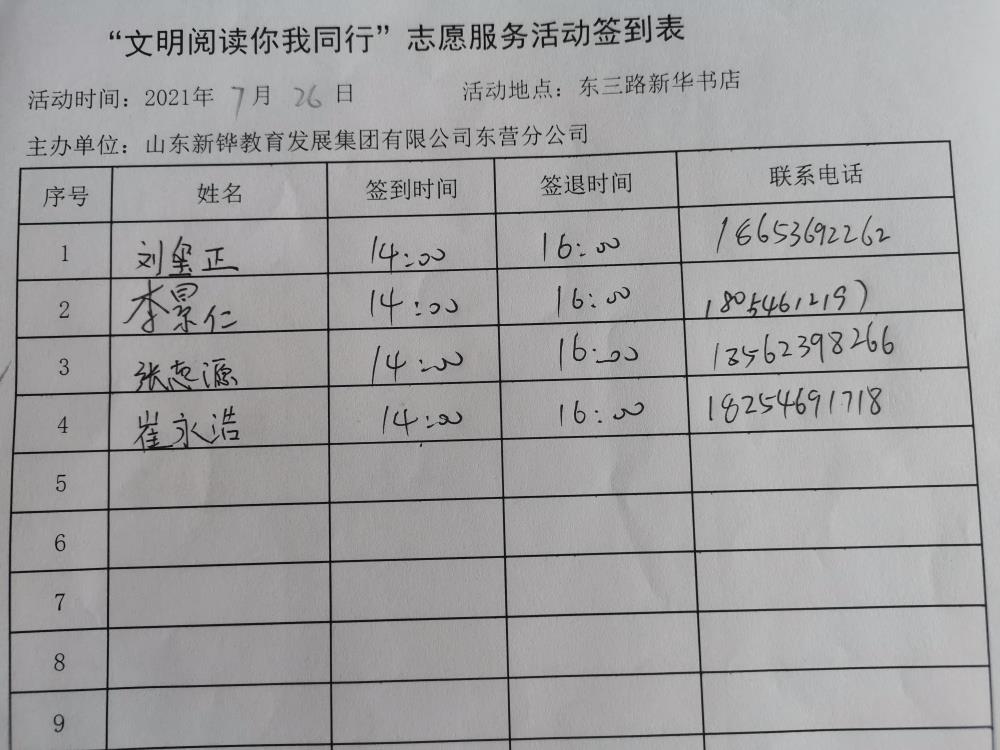 “文明阅读你我同行”志愿服务活动签到表
活动时间：2021年 7月 26日 活动地点：东三路新华书店
主办单位：山东新铧教育发展集团有限公司东营分公司
序号 姓名 签到时间 签退时间 联系电话
1 刘玺正 14:00 16:00 18653692262
2 李景仁 14:00 16:00 18054612197
3 张志源 14:00 16:00 18562398266
4 崔永浩 14:00 16:00 18254691718
5
6
7
8
9